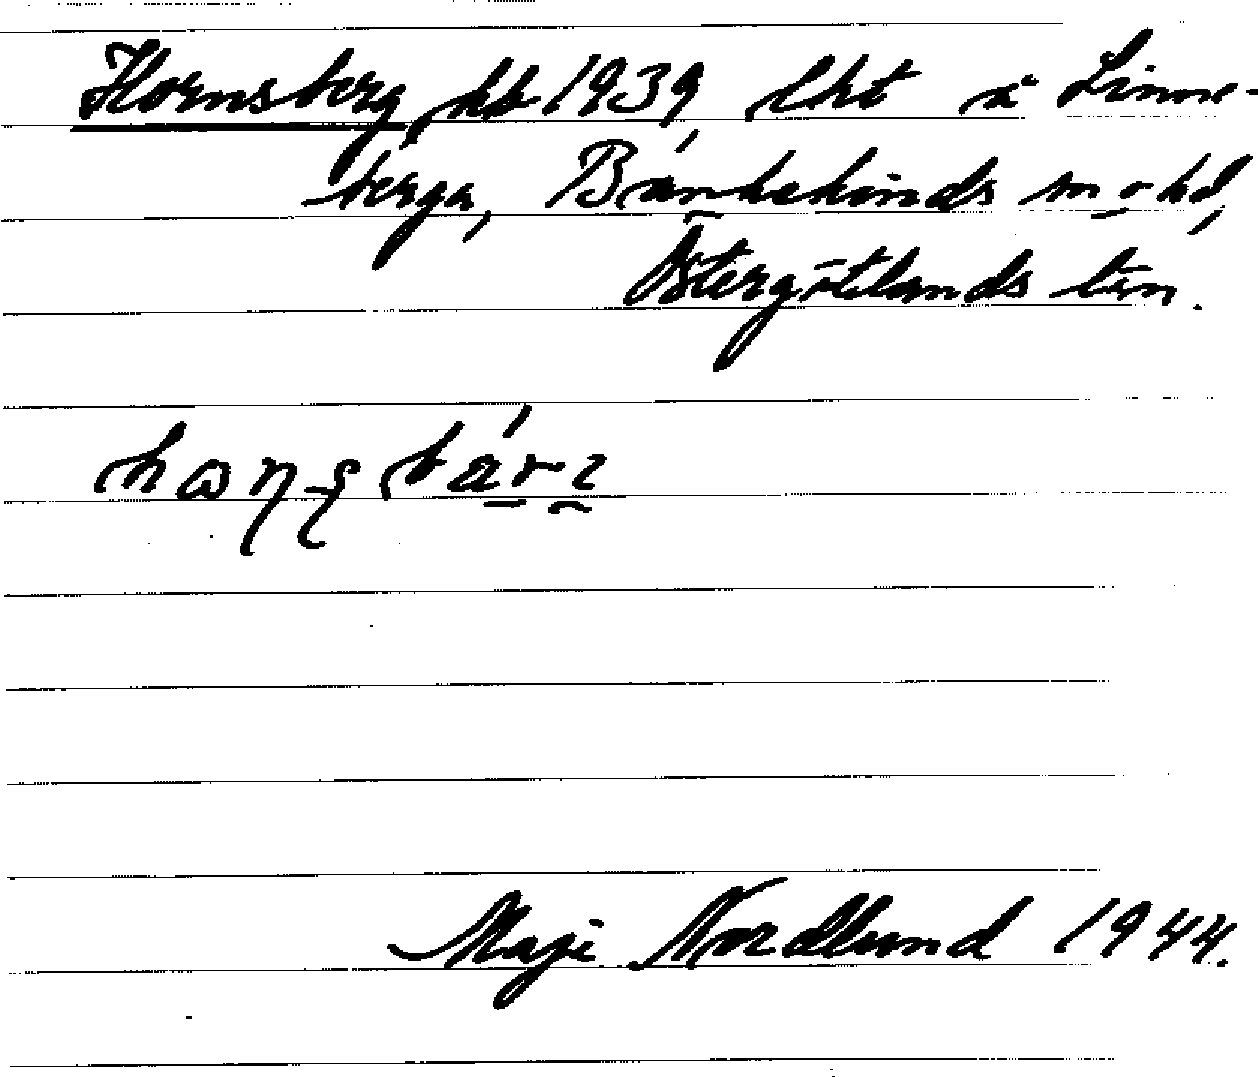 Hornsberg, hb 1939, lht å Linne-
berga, Bankekinds sn o hd,
Östergötlands län.
Maji Nordlund 1944.